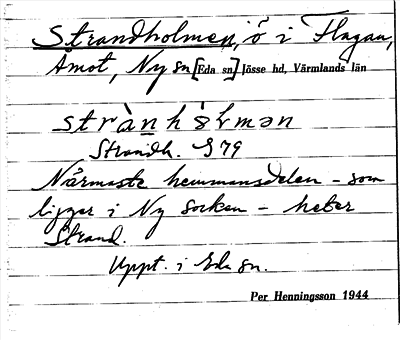 Strandholmen, ö i Flagan,
Åmot, Ny sn [Eda sn] Jösse hd, Värmlands län
strànhòlmən
Strandh. G79
Närmaste hemmansdelen - som
ligger i Ny socken - heter
Strand.
Uppt. i Eda sn.
Per Henningsson 1944